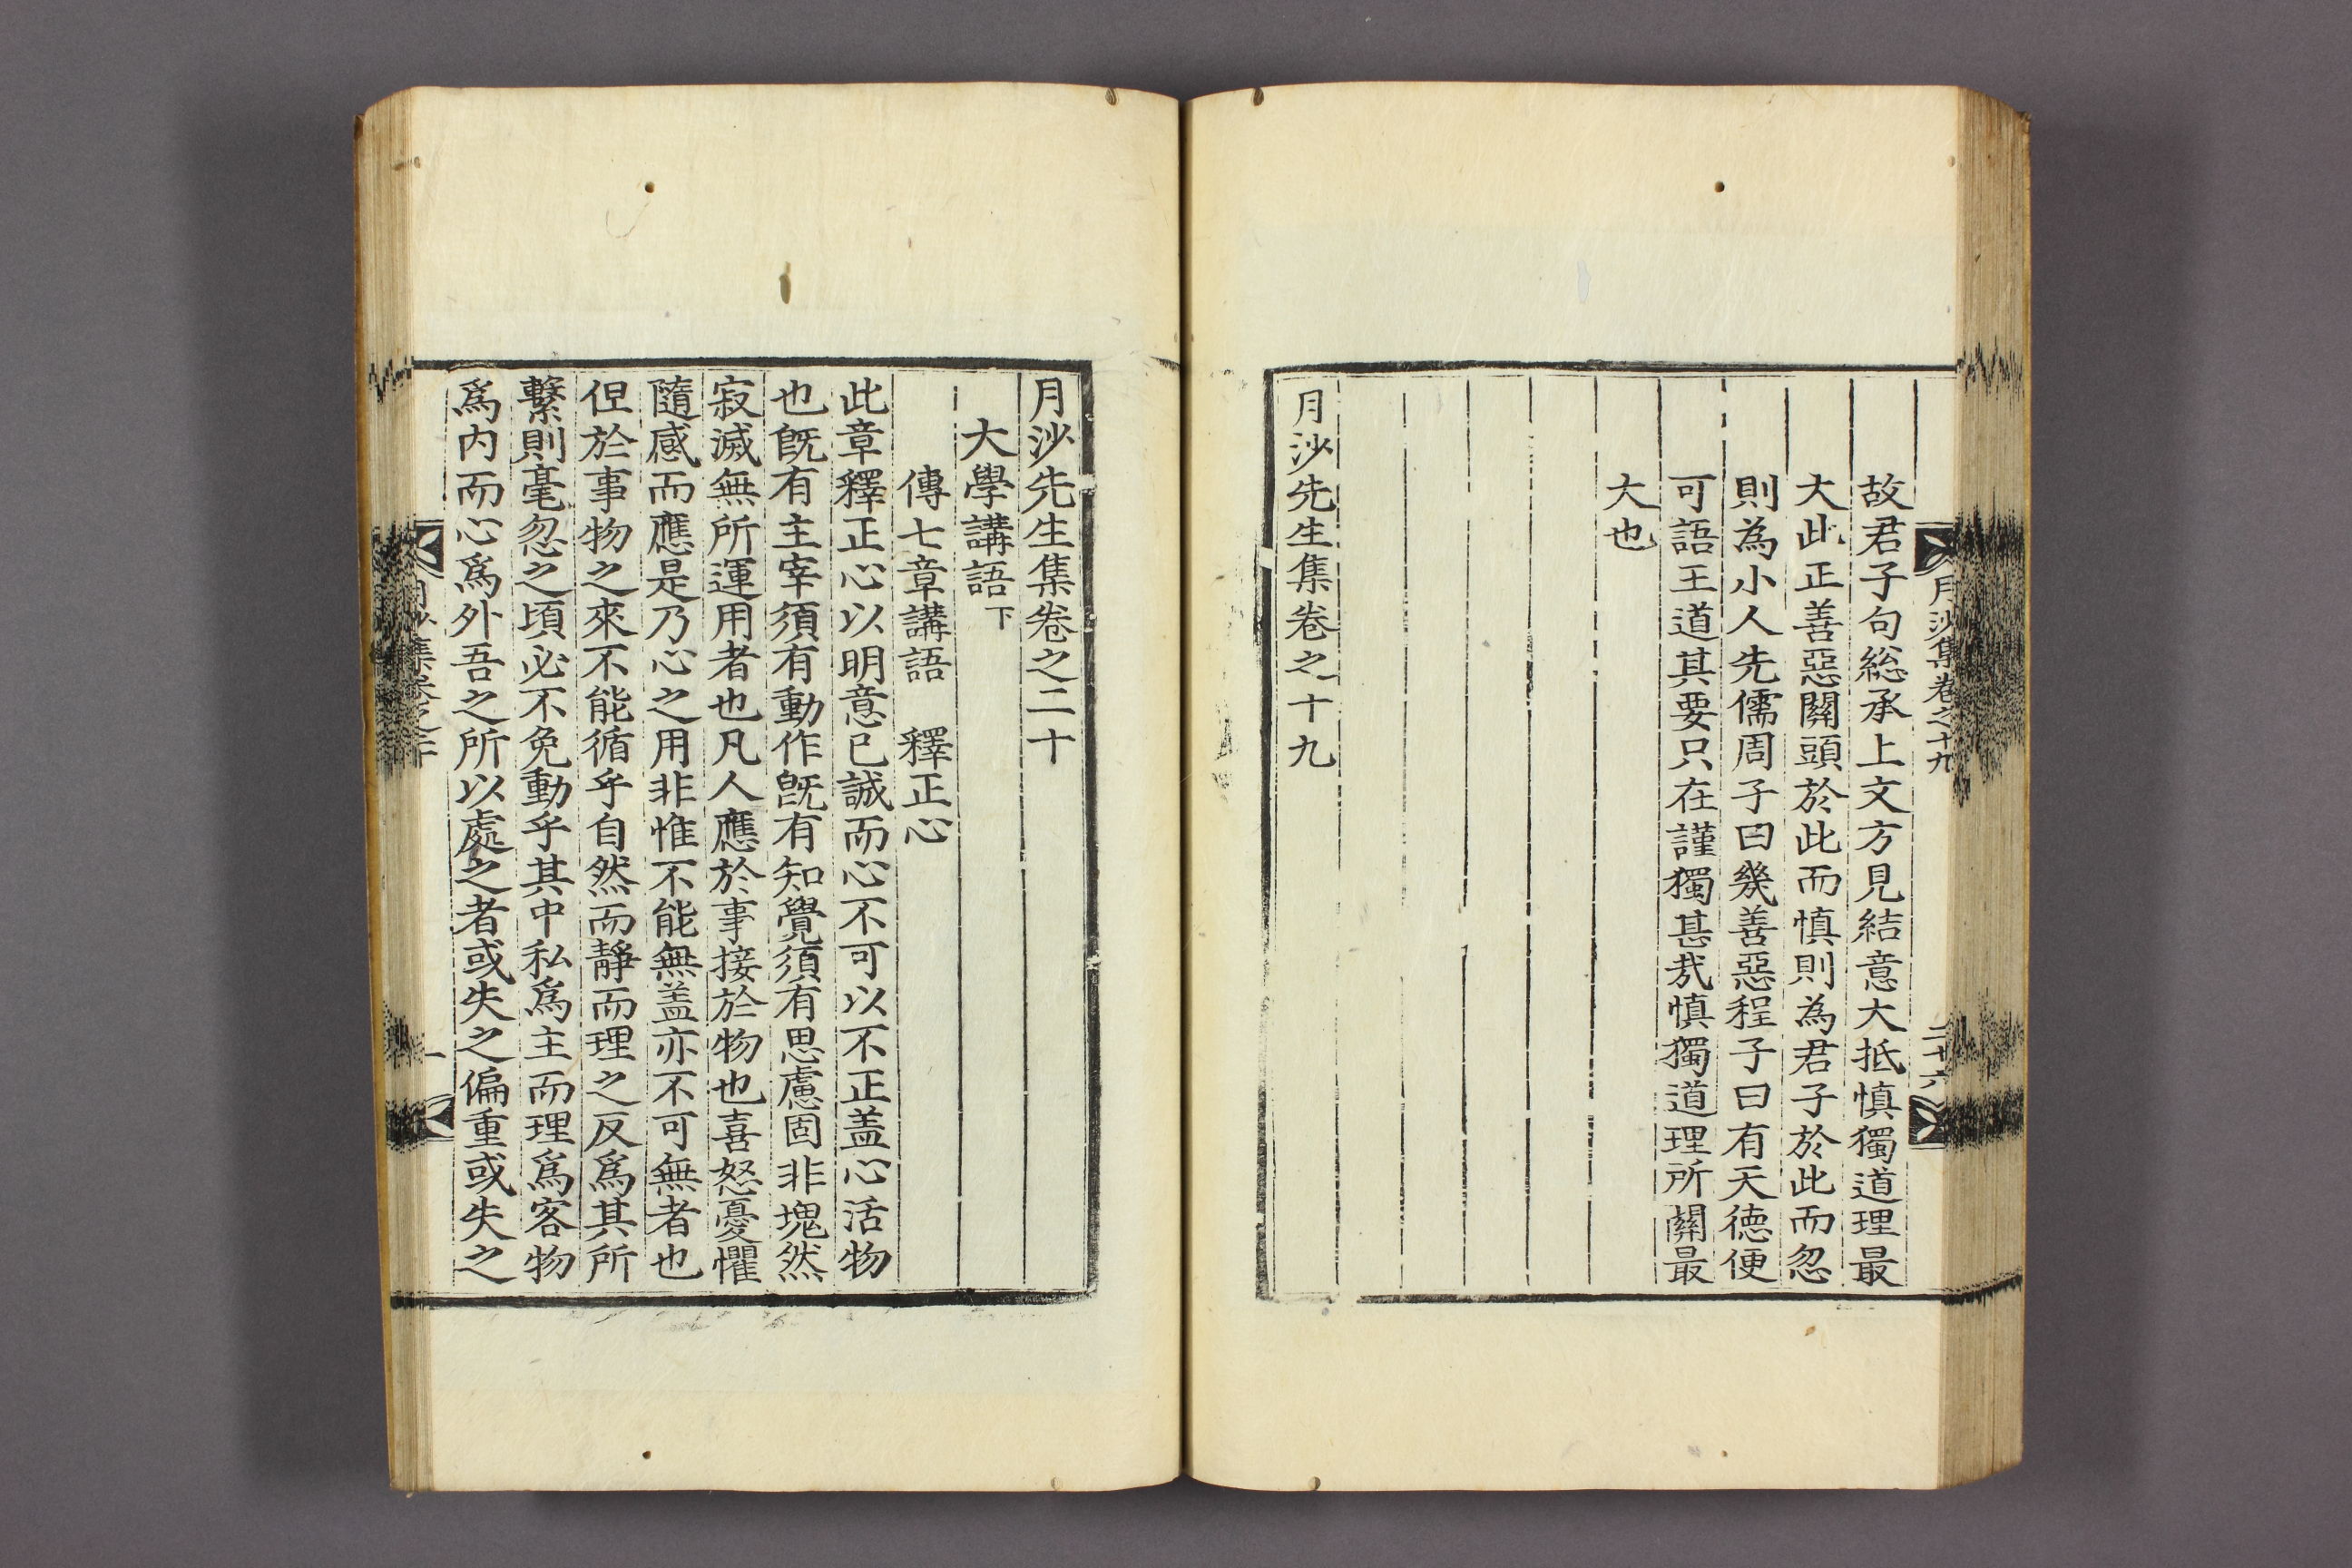 月沙集卷之十九 二十六
故君子句総承上文方見結意大抵慎獨道理最
大此正善惡關頭於此而慎則為君子於此而忽
則為小人先儒周子曰幾善惡程子曰有天德便
可語王道其要只在謹獨甚哉慎獨道理所關最
大也
月沙先生集卷之十九
月沙先生集卷之二十
大學講語下
傳七章講語 釋正心
此章釋正心以明意已誠而心不可以不正盖心活物
也旣有主宰須有動作旣有知覺須有思慮固非塊然
寂滅無所運用者也凡人應於事接於物也喜怒憂懼
隨感而應是乃心之用非惟不能無盖亦不可無者也
但於事物之來不能循乎自然而靜而理之反爲其所
繫則毫忽之頃必不免動乎其中私爲主而理爲客物
爲内而心爲外吾之所以處之者或失之偏重或失之
月沙集卷之二十 一